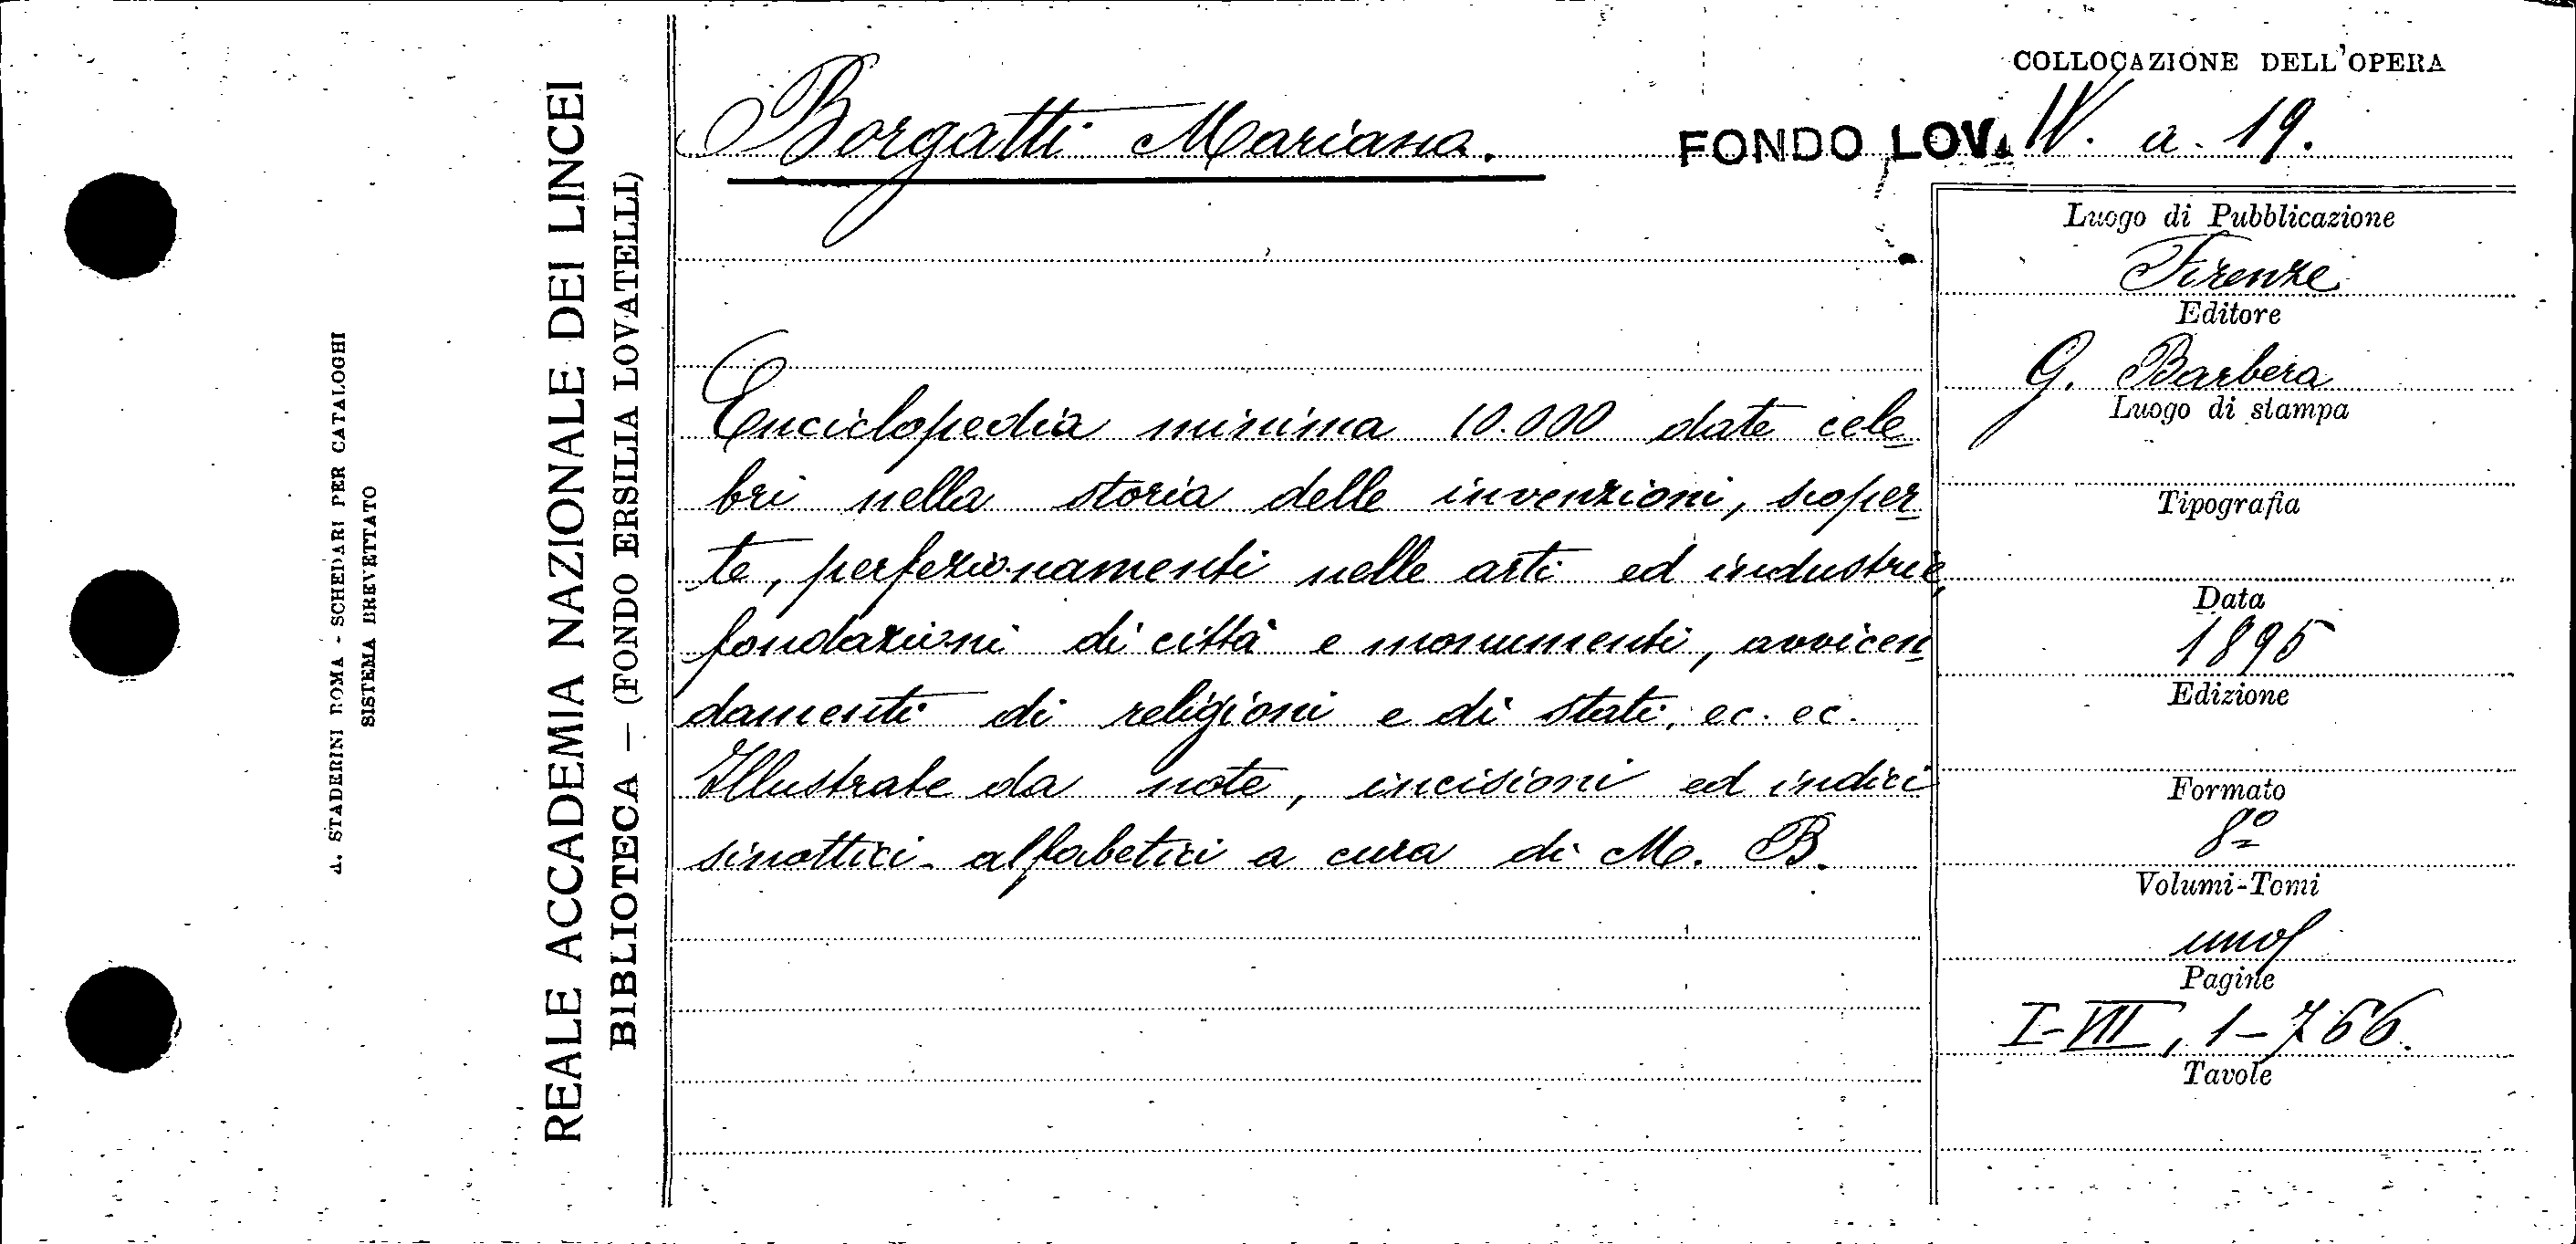 COLLOCAZIONE DELL'OPERA
Borgatti Mariana.
FONDO LOV. IV. a. 19.
Enciclopedia minima 10.000 date cele-
bri nella storia delle invenzioni, scoper-
te, perfezionamenti nelle arti ed industrie,
fondazioni di città e monumenti, avvicen-
damenti di religioni e di stati, ec. ec.
Illustrate da note, incisioni ed indici
sinottici-alfabetici a cura di M. B.
Luogo di Pubblicazione
Firenze
Editore
G. Barbera
Luogo di stampa
Tipografia
Data
1895
Edizione
Formato
8º
Volumi-Tomi
uno
Pagine
I-VII, 1-766.
Tavole
REALE ACCADEMIA NAZIONALE DEI LINCEI
BIBLIOTECA — (FONDO ERSILIA LOVATELLI)
A. STADERINI ROMA - SCHEDARI PER CATALOGHI
SISTEMA BREVETTATO